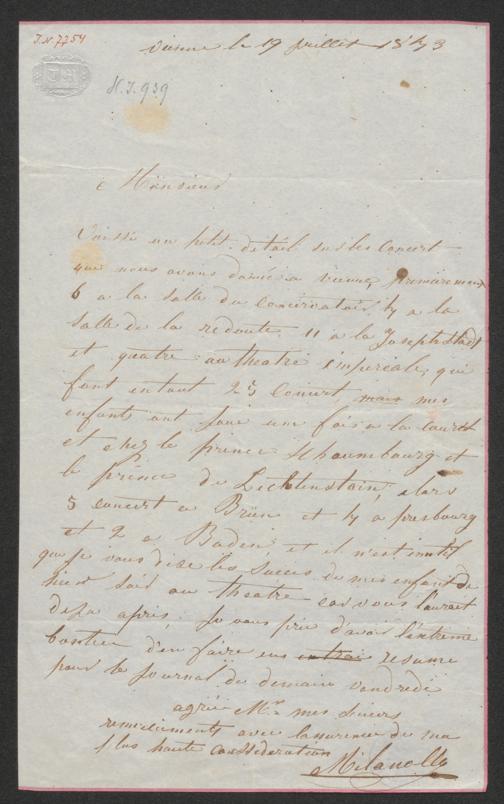 I.N. 7754
N.I. 939
Vienne le 19 juillet 1843
Monsieur
Voissi un petit détail sur les Concert
que nous avons donné a vienne, premierement
6 a la salle du Concervatoir, 4 a la
salle de la redoute 11 a la Josephstadt
et quatre au theatre imperiale, qui
font entout 25 Concert, mais mes
enfants ont joué un fois a la Court
et chez le prince Schaumbourg et
le prince de Lichtenstein, alors
5 Concert a Brün et 4 a presbourg
et 2 a Baden, et il n'est inutil
que je vous dise les succes de mes enfant de
hier soir au theatre car vous l'aurait
deja apris, Je vous prie d'avoir l'extreme
bontier d'en faire une resume
pour le Journal de demain vendredi
agrée Mr. mes sincers
remerciements avec lassurance de ma
plus haute Consideration
Milanollo